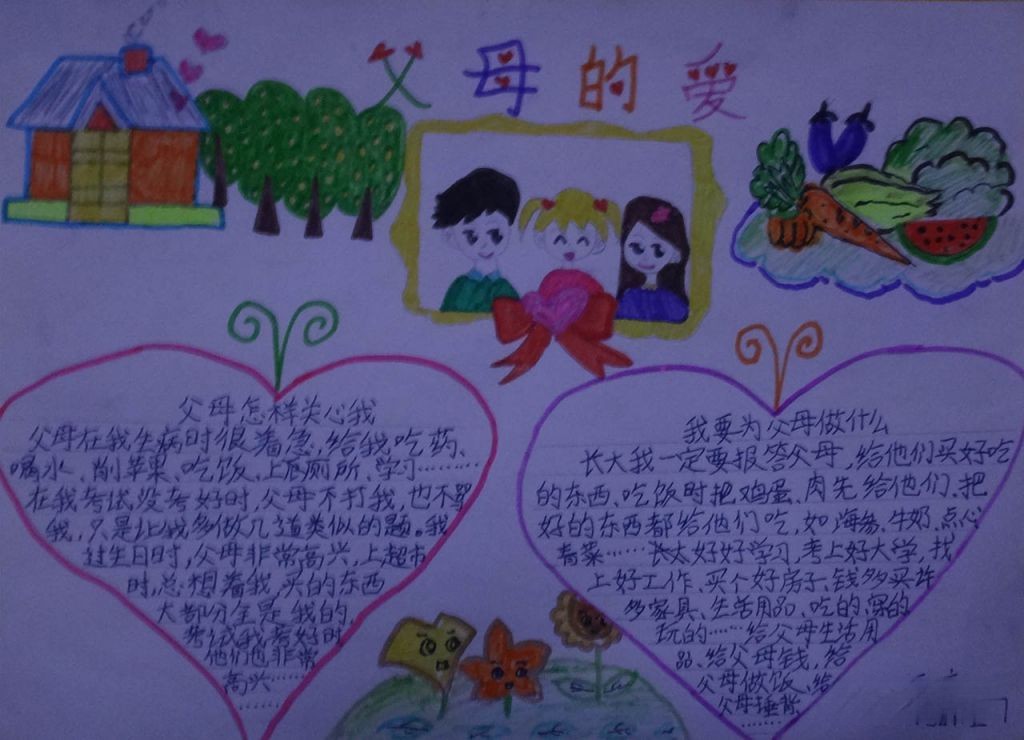 父母的爱
父母怎样关心我
父母在我生病时很着急,给我吃药、
喝水、削苹果、吃饭、上厕所、学习………
在我考试没考好时,父母不打我,也不骂
我,只是让我多做几道类似的题。我
过生日时,父母非常高兴,上超市
时,总想着我,买的东西
大部分全是我的,
考试我考好时
他们也非常
高兴……
……
我要为父母做什么
长大我一定要报答父母,给他们买好吃
的东西、吃饭时把鸡蛋、肉先给他们、把
好的东西都给他们吃,如海参、牛奶、点心
青菜……长大好好学习,考上好大学、找
上好工作、买个好房子、钱多买许
多家具、生活用品、吃的、穿的
玩的……给父母生活用
品、给父母钱,给
父母做饭、给
父母捶背
……